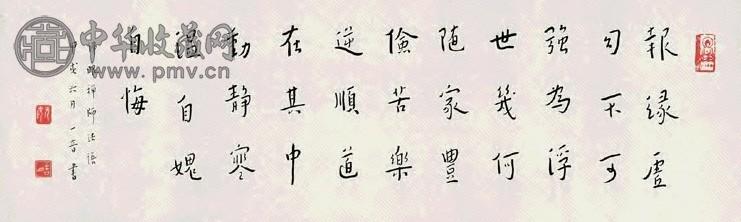 報緣虛
幻不可
強為浮
世幾何
隨家豐
儉苦樂
逆順道
在其中
動靜寒
溫自愧
自悔
眼禪師法語
戌六月一音書
中华收藏网
www.pmv.cn